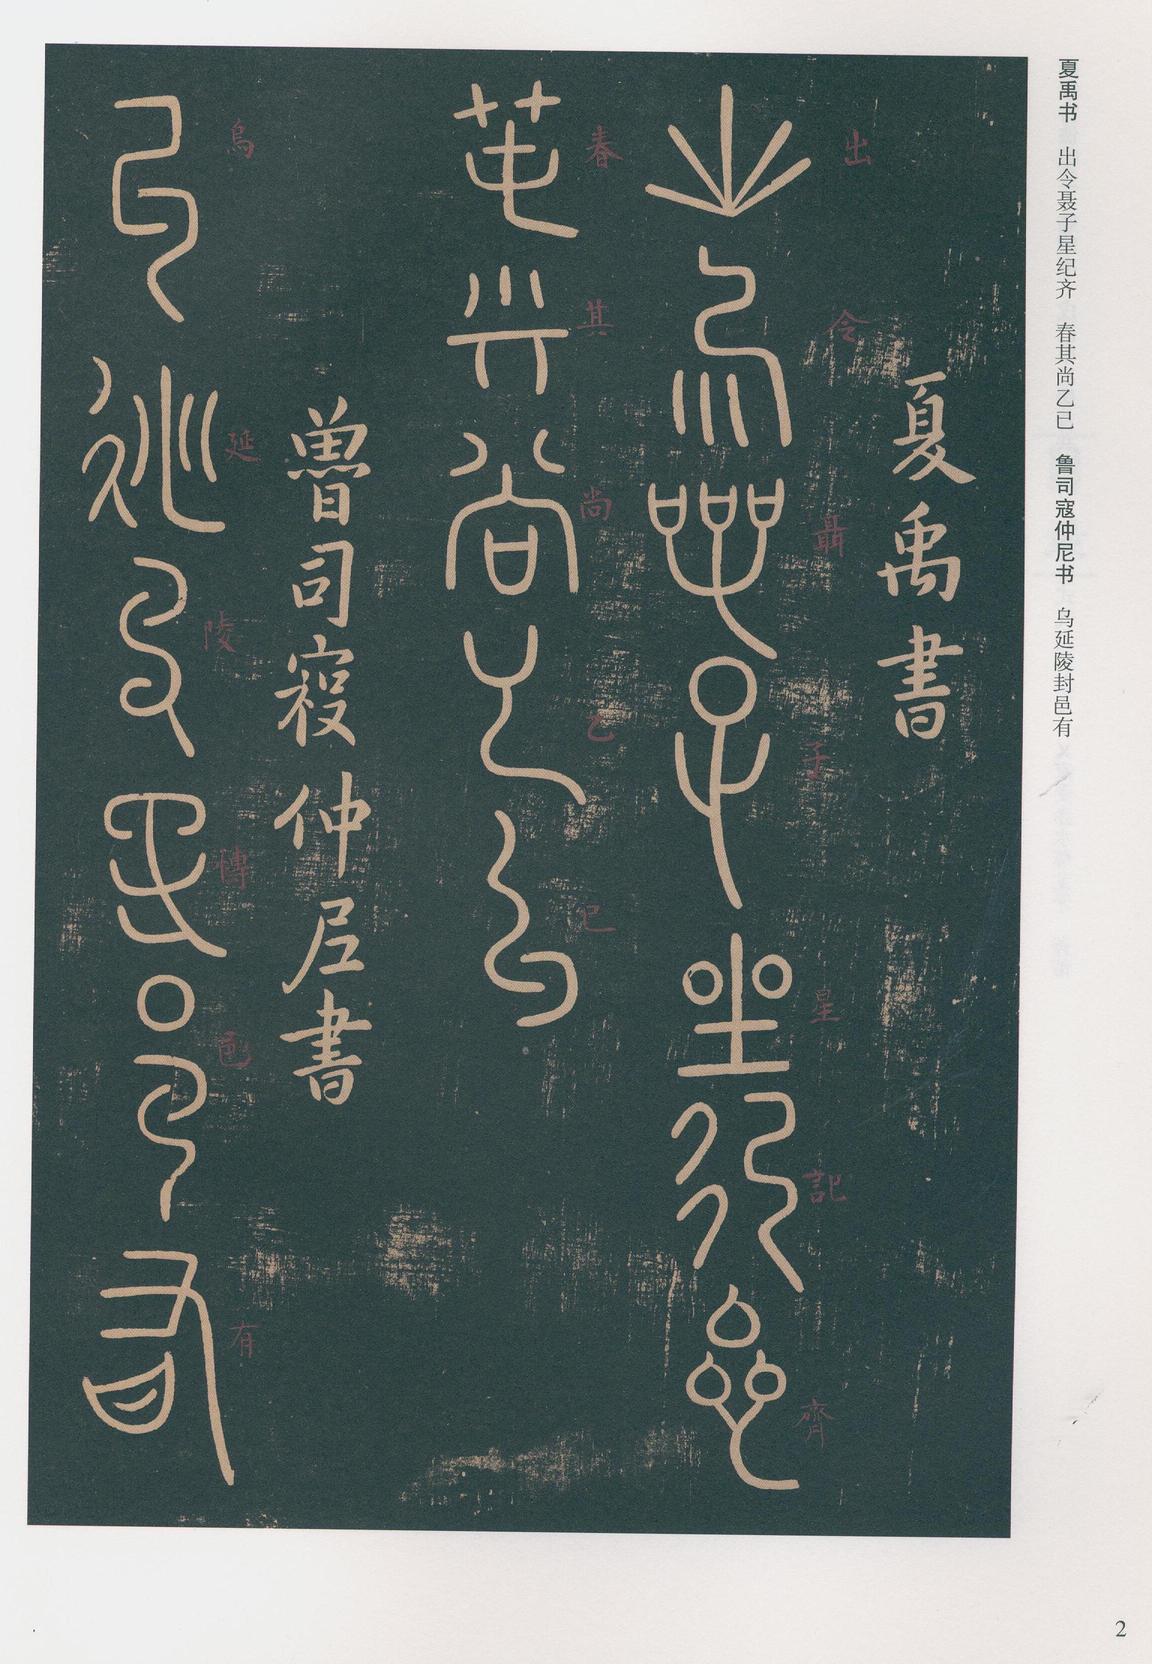 夏禹书　出令聂子星纪齐　春其尚乙已　鲁司寇仲尼书　乌延陵封邑有
夏禹書
出令聶子星記齊
春其尚乙已
魯司寇仲尼書
烏延陵𫝊邑有
2